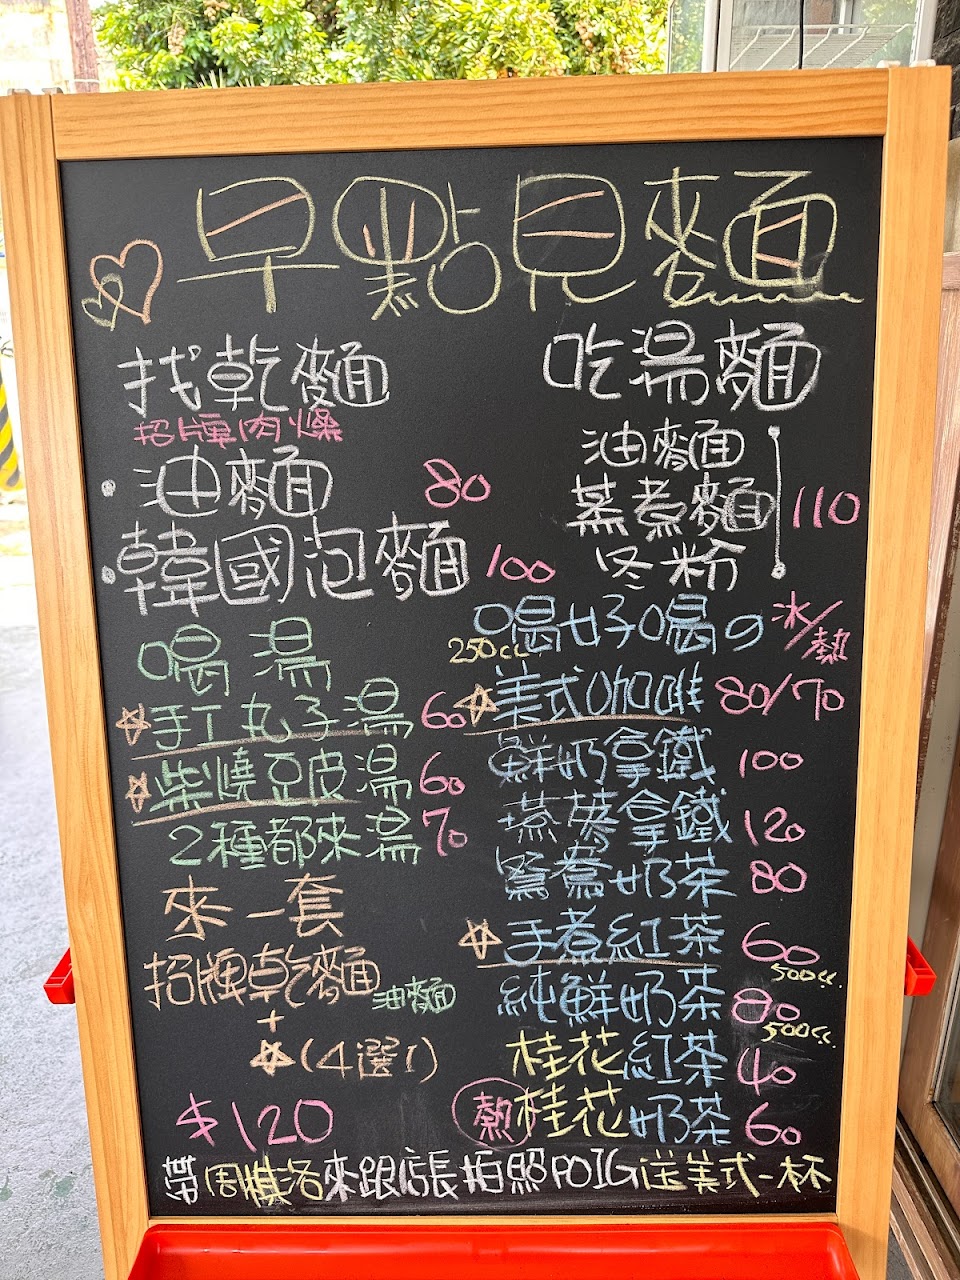 早點見麵
找乾麵
招牌肉燥
·油麵 80
·韓國泡麵 100
喝湯
☆手工丸子湯 60
☆柴燒豆皮湯 60
2種都來湯 70
來一套
招牌乾麵 油麵
+
☆(4選1)
$120
吃湯麵
油麵
蒸煮麵 110
冬粉
喝好喝的 冰/熱
250cc
☆美式咖啡 80/70
鮮奶拿鐵 100
燕麥拿鐵 120
鴛鴦奶茶 80
☆手煮紅茶 60
500cc.
純鮮奶茶 80
500cc.
桂花紅茶 40
熱桂花奶茶 60
夢周棋洛來跟店長拍照PO IG送美式一杯